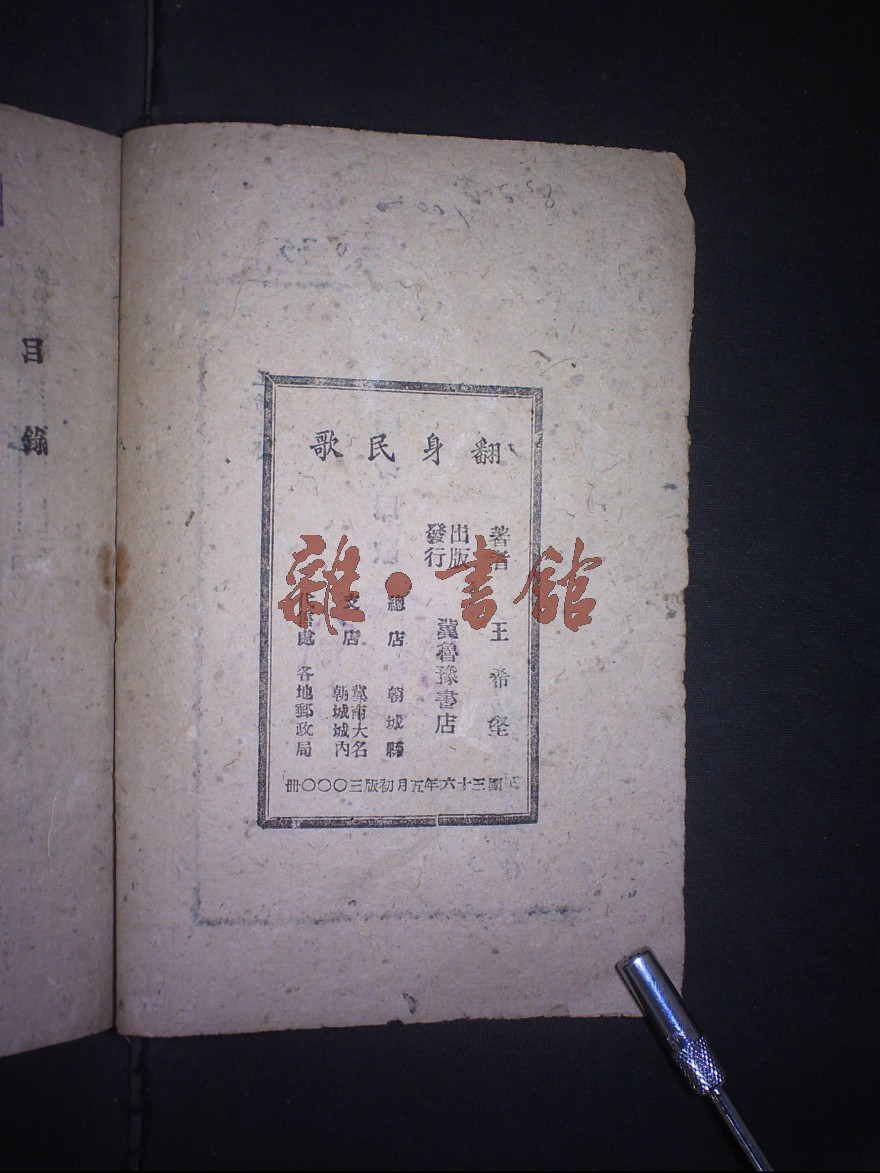 翻身民歌
著者 王希堅
出版
發行 冀魯豫書店
總店 朝城縣
支店 冀南大名
朝城城內
代售處 各地郵政局
民國三十六年五月初版三〇〇〇冊
目錄
雜·書館